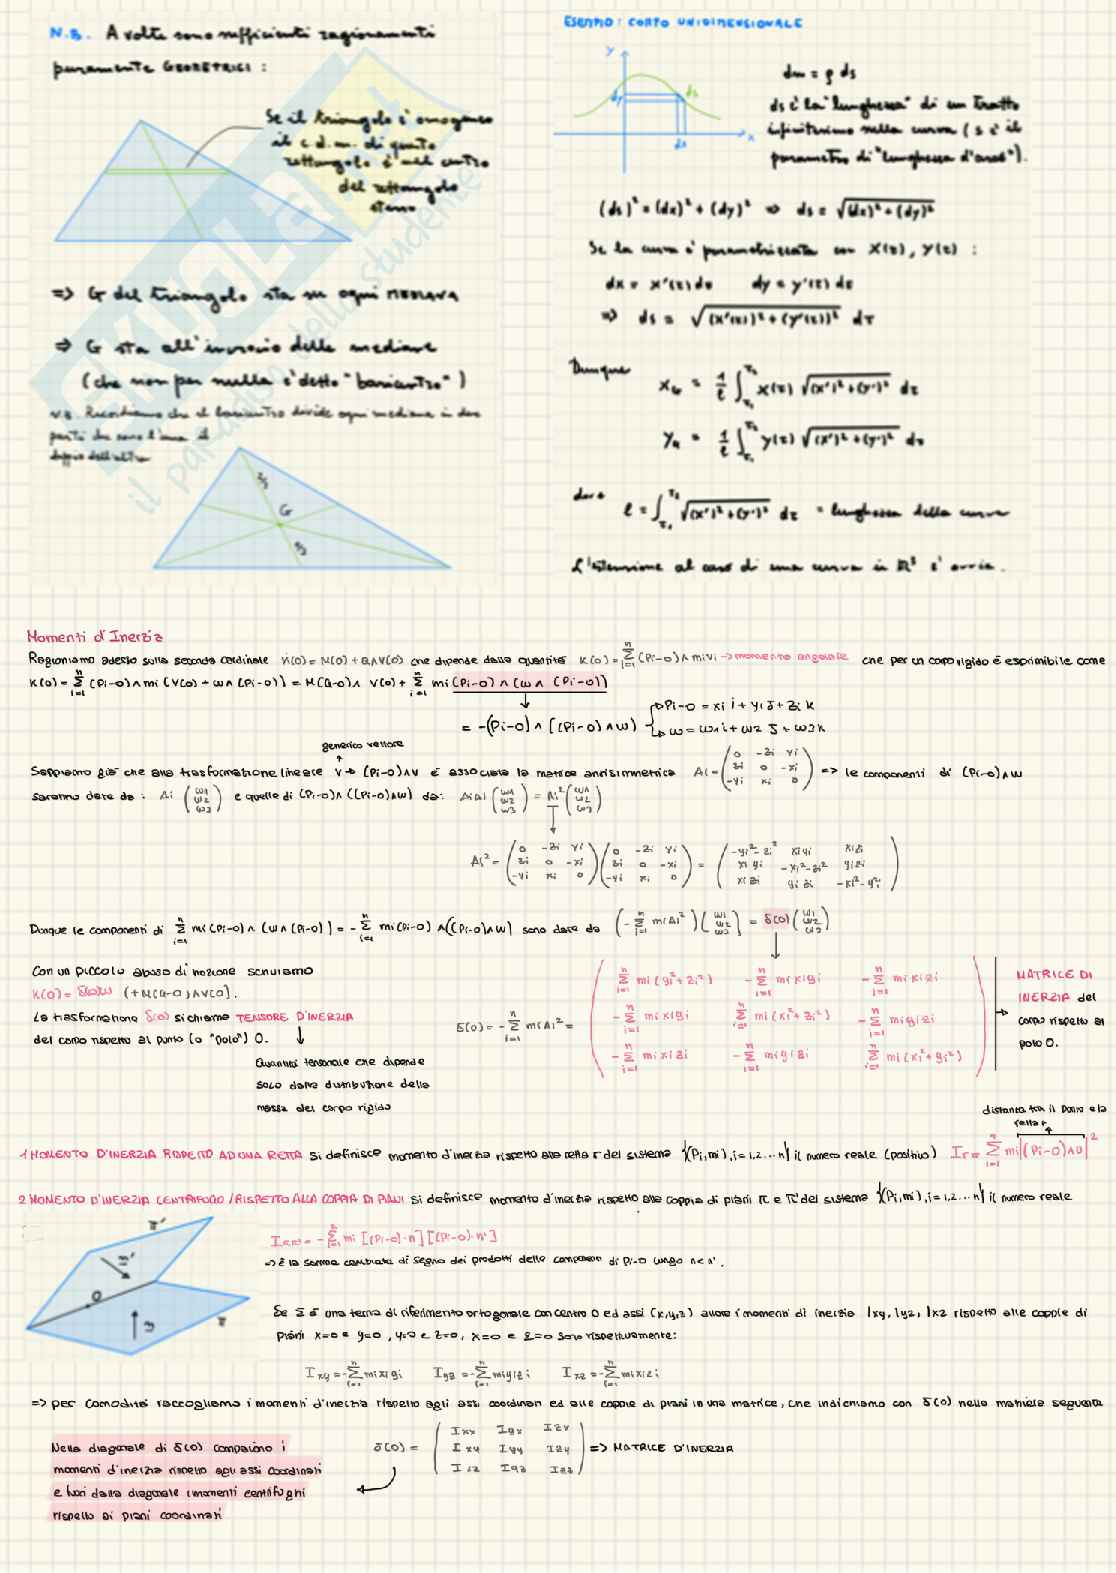 N.B. A volte sono sufficienti ragionamenti
puramente GEOMETRICI :
Se il triangolo è omogeneo
il c.d.m. di questo
rettangolo è nel centro
del rettangolo
stesso
=> G del triangolo sta su ogni MEDIANA
=> G sta all'incrocio delle mediane
(che non per nulla è detto "baricentro")
N.B. Ricordiamo che il baricentro divide ogni mediana in due
parti che sono l'una il
doppio dell'altra
2/3
G
1/3
SKUOLA
il paradiso dello studente
ESEMPIO: CORPO UNIDIMENSIONALE
y
dy
ds
x
dx
dm = ρ ds
ds è la "lunghezza" di un tratto
infinitesimo sulla curva (s è il
parametro di "lunghezza d'arco").
(ds)² = (dx)² + (dy)² => ds = √(dx)² + (dy)²
Se la curva è parametrizzata con X(τ), Y(τ) :
dx = x'(τ) dτ dy = y'(τ) dτ
=> ds = √(x'(τ))² + (y'(τ))² dτ
Dunque
x_G = 1/ℓ ∫ x(τ) √(x')² + (y')² dτ
y_G = 1/ℓ ∫ y(τ) √(x')² + (y')² dτ
dove
ℓ = ∫ √(x')² + (y')² dτ = lunghezza della curva
L'estensione al caso di una curva in ℝ³ è ovvia.
Momenti d'Inerzia
Ragioniamo adesso sulla seconda cardinale K̇(O) = M(O) + Q∧V(O) che dipende dalla quantità K(O) = Σ (Pi-O) ∧ mivi -> momento angolare che per un corpo rigido è esprimibile come
K(O) = Σ (Pi-O) ∧ mi (V(O) + ω∧(Pi-O)) = M(G-O) ∧ V(O) + Σ mi (Pi-O) ∧ (ω∧ (Pi-O))
= -(Pi-O) ∧ [(Pi-O) ∧ω)
Pi-O = xi i + yi j + zi k
ω = ω1 i + ω2 j + ω3 k
generico vettore
Sappiamo già che alla trasformazione lineare V -> (Pi-O)∧V è associata la matrice antisimmetrica Ai = (0 -zi yi / zi 0 -xi / -yi xi 0) => le componenti di (Pi-O)∧ω
saranno date da : Ai (ω1 ω2 ω3) e quelle di (Pi-O)∧ ((Pi-O)∧ω) da: AiAi (ω1 ω2 ω3) = Ai² (ω1 ω2 ω3)
Ai² = (0 -zi yi / zi 0 -xi / -yi xi 0) (0 -zi yi / zi 0 -xi / -yi xi 0) = (-yi²-zi² xiyi xizi / xi yi -xi²-zi² yizi / xi zi yi zi -xi²-yi²)
Dunque le componenti di Σ mi (Pi-O) ∧ (ω∧(Pi-O)) = -Σ mi (Pi-O) ∧((Pi-O)∧ω) sono date da (-Σ miAi²) (ω1 ω2 ω3) = δ(O) (ω1 ω2 ω3)
Con un piccolo abuso di nozione scriviamo
K(O) = δ(O)ω (+M(G-O)∧V(O)].
La trasformazione δ(O) si chiama TENSORE D'INERZIA
del corpo rispetto al punto (o "polo") O.
Quantità tensoriale che dipende
solo dalla distribuzione della
massa del corpo rigido
δ(O) = -Σ miAi² =
Σ mi (yi²+zi²) -Σ mi xiyi -Σ mi xizi
-Σ mi xiyi Σ mi (xi²+zi²) -Σ miyizi
-Σ mi xizi -Σ mi yizi Σ mi (xi²+yi²)
MATRICE DI
INERZIA del
corpo rispetto al
polo O.
distanza tra il punto e la
retta r
1 MOMENTO D'INERZIA RISPETTO AD UNA RETTA si definisce momento d'inerzia rispetto alla retta r del sistema {(Pi,mi), i=1,2...n} il numero reale (positivo) Ir = Σ mi|(Pi-O)∧u|²
2 MOMENTO D'INERZIA CENTRIFUGO/RISPETTO ALLA COPPIA DI PIANI si definisce momento d'inerzia rispetto alla coppia di piani π e π' del sistema {(Pi,mi), i=1,2...n} il numero reale
π'
n'
O
n
π
Iππ' = -Σ mi [(Pi-O)·n] [(Pi-O)·n']
=> è la somma cambiata di segno dei prodotti delle componenti di Pi-O lungo n e n'.
Se Σ è una terna di riferimento ortogonale con centro O ed assi (x,y,z) allora i momenti di inerzia Ixy, Iyz, Ixz rispetto alle coppie di
piani x=0 e y=0, y=0 e z=0, x=0 e z=0 sono rispettivamente:
Ixy = -Σ mixiyi Iyz = -Σ miyizi Ixz = -Σ mixizi
=> per comodità raccogliamo i momenti d'inerzia rispetto agli assi coordinati ed alle coppie di piani in una matrice, che indichiamo con δ(O) nella maniera seguente
Nella diagonale di δ(O) compaiono i
momenti d'inerzia rispetto agli assi coordinati
e fuori dalla diagonale i momenti centrifughi
rispetto ai piani coordinati
δ(O) = (Ixx Iyx Izx / Ixy Iyy Izy / Ixz Iyz Izz) => MATRICE D'INERZIA